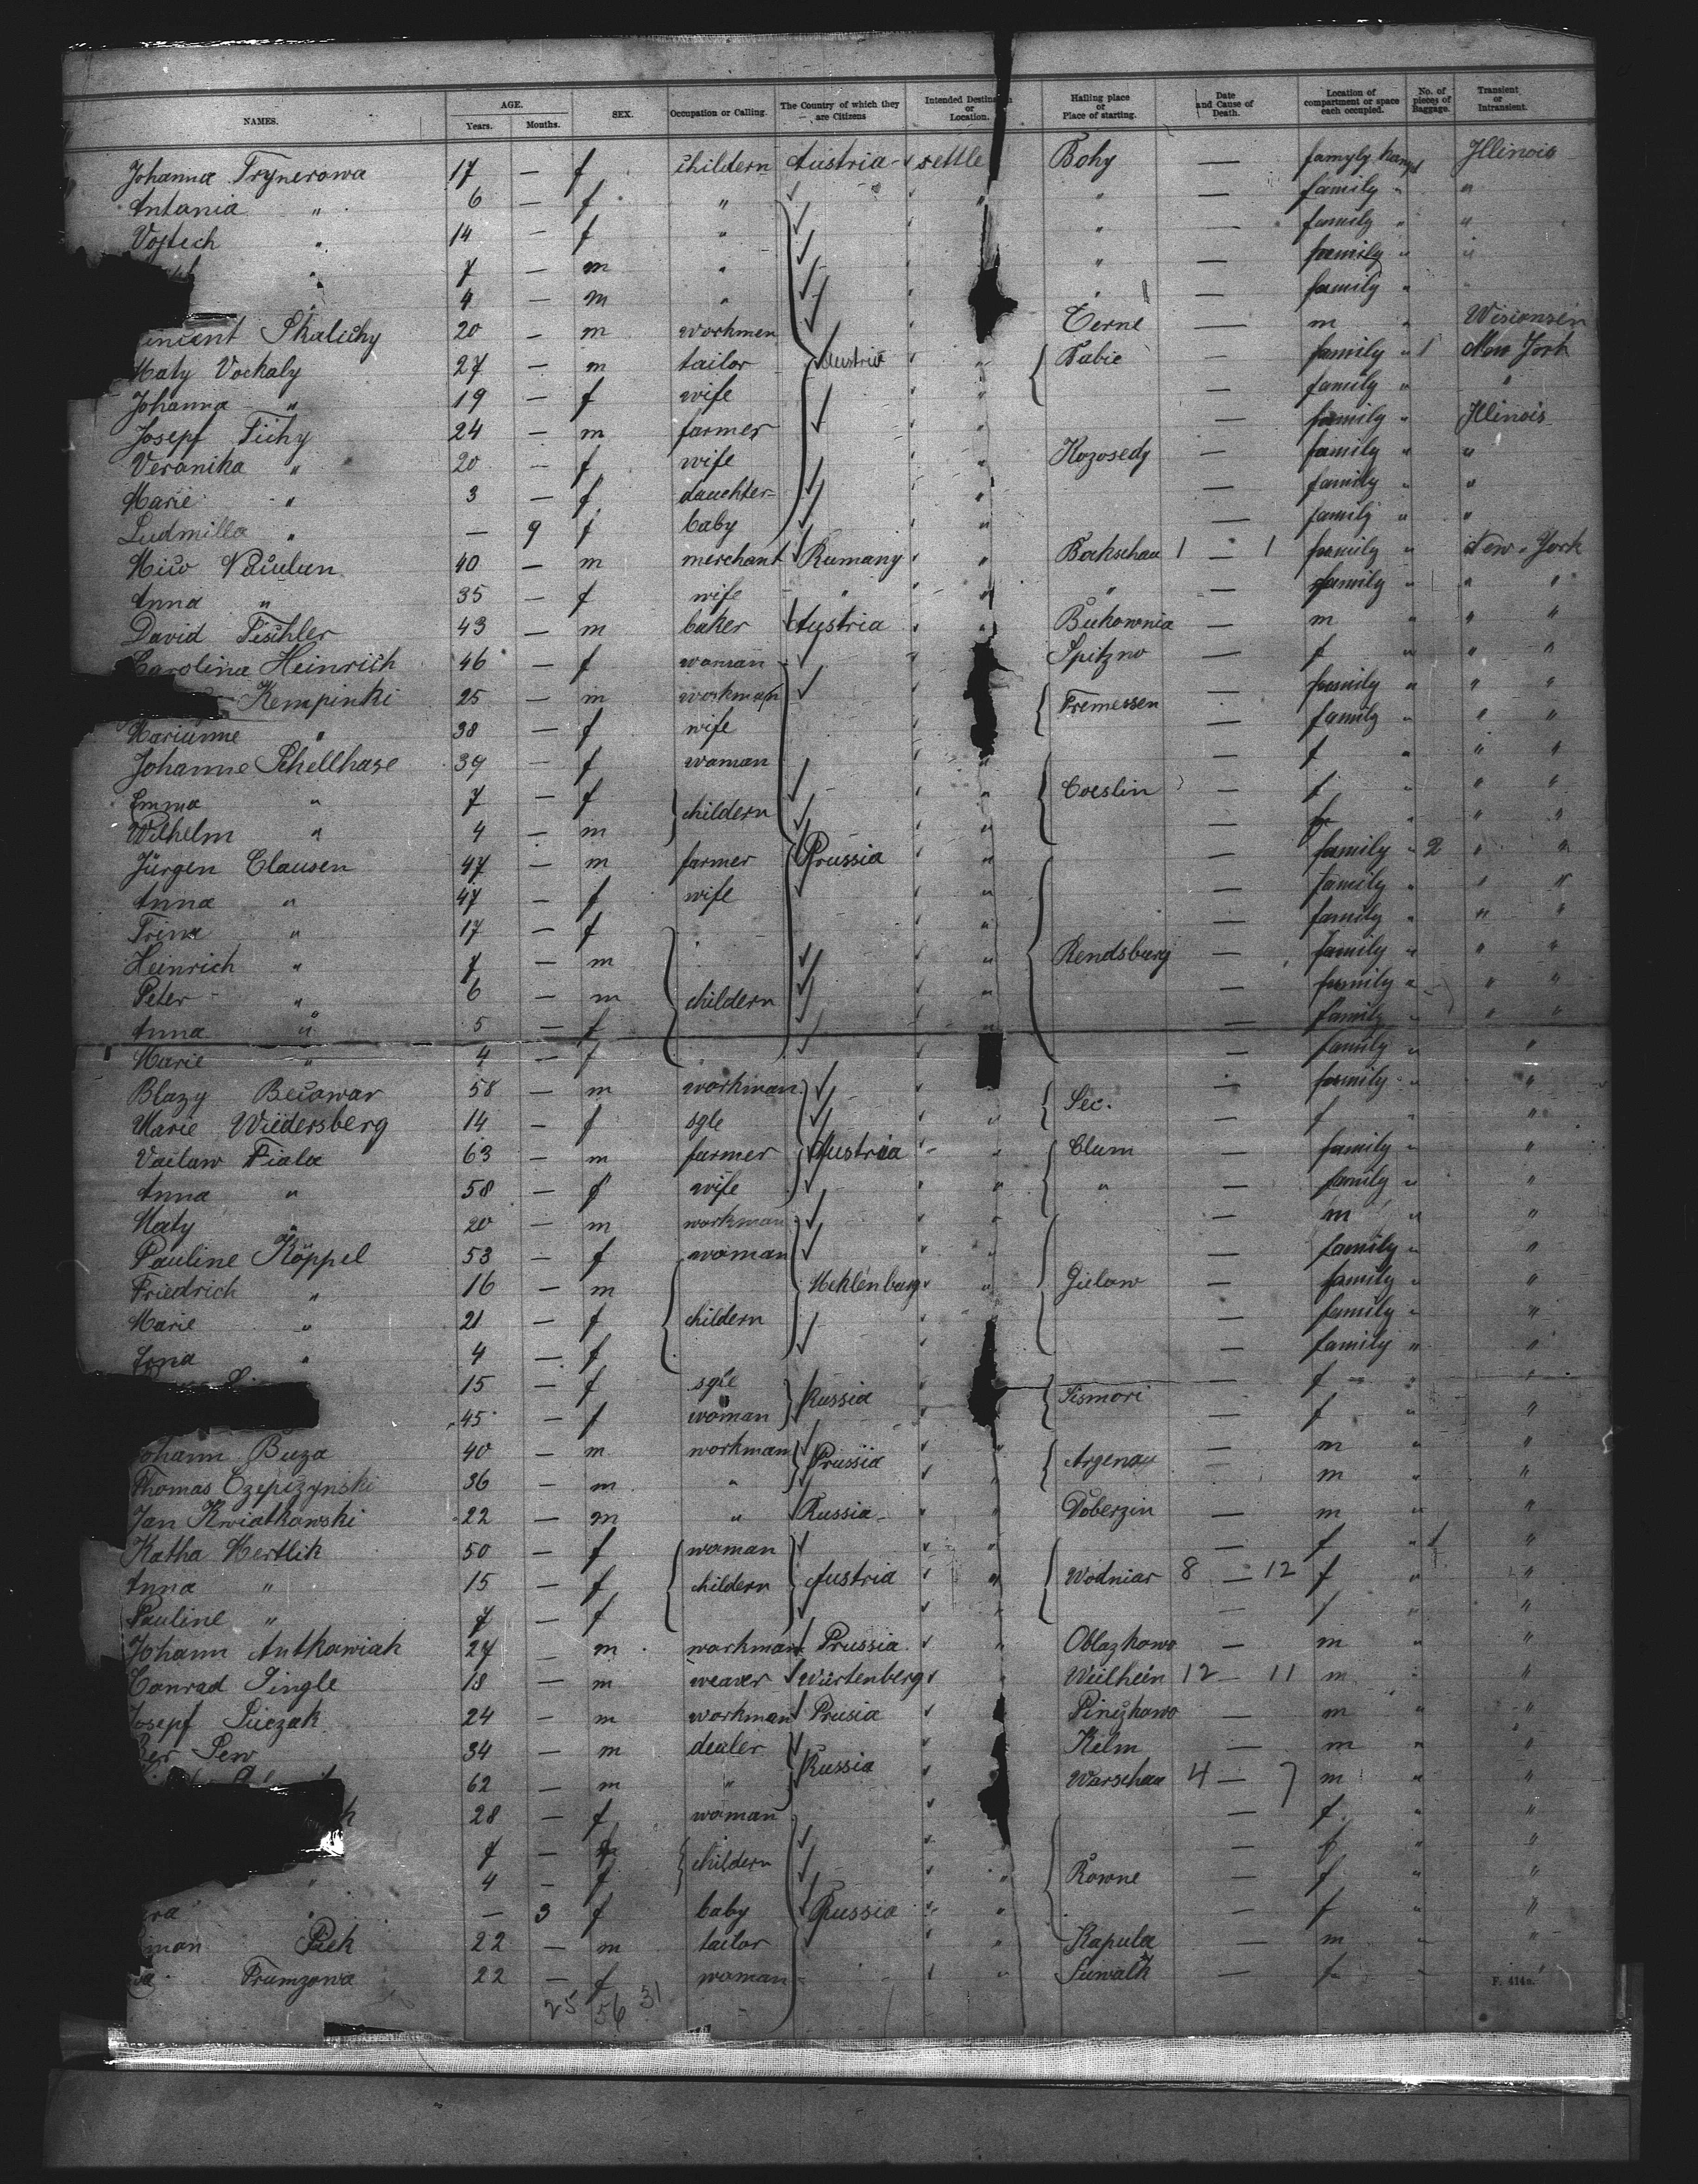 NAMES. AGE. Years. Months. SEX. Occupation or Calling. The Country of which they are Citizens Intended Destination or Location. Hailing place or Place of starting. Date and Cause of Death. Location of compartment or space each occupied. No. of pieces of Baggage. Transient or Intransient.
Johanna Trynerowa 17 — f childern Austria settle Bohy — famyly Illinois
Antonia " 6 — f " " " — family " "
Vojtech " 14 — f " " — family " "
" 7 — m " " — family " "
" 4 — m " " — family " "
Skalichy 20 — m workmen Cerne — m " Wisionsin
Maty Vockaly 27 — m tailor Austria " Babie family " 1 New York
Johanna " 19 — f wife " — family " "
Josepf Tichy 24 — m farmer " — family " Illinois
Veronika " 20 — f wife " Kozosedy — family " "
Marie " 3 — f dauchter " — family " "
Ludmilla " — 9 f baby " — family " "
40 — m merchant Rumany " Bokschau 1 — 1 family " New-York
Anna " 35 — f wife " " " — family " " "
David Fischler 43 — m baker Austria " Bukownia — m " " "
Carolina Heinrich 46 — f woman Spitzno — f " " "
Kempinki 25 — m workman Tremessen — family " " "
Marianne " 38 — f wife — family " " "
Johanne Schellhase 39 — f woman " — f " " "
Emma " 7 — f childern " Coeslin — f " " "
Wilhelm " 4 — m " — f " " "
Jürgen Clausen 47 — m farmer Prussia " — family " 2 " "
Anna " 47 — f wife " — family " " "
Trina " 17 — f " — family " " "
Heinrich " 7 — m " Rendsburg — family " " "
Peter " 6 — m childern " — family " " "
Anna " 5 — f " — family " " "
Marie " 4 — f — family " "
Blazy Becawar 58 — m workman Sec. — family " "
Marie Wiedersberg 14 — f sgle " — f " "
Vaclaw Fiala 63 — m farmer Austria " Clum — family " "
Anna " 58 — f wife " " — family " "
Maty " 20 — m workman " — m " "
Pauline Köppel 53 — f woman " — family " "
Friedrich " 16 — m Meklenburg " Gielow — family " "
Marie " 21 — f childern — family " "
" 4 — f — family " "
15 — f sgle Russia Tismori — f " "
45 — f woman — f " "
Johann Buza 40 — m workman Prussia " Argenau — m " "
Thomas Czepczynski 36 — m " " — m " "
Jan Kwiatkowski 22 — m " Russia " Doberzin — m " "
Katha Hertlik 50 — f woman " — f " 1 "
Anna " 15 — f childern Austria " Wodniar 8 — 12 f " "
Pauline " 7 — f " — f " "
Johann Antkowiak 27 — m workman Prussia " Oblazkowo — m " "
Conrad Single 18 — m weaver Würtenberg " Weilheim 12 — 11 m " "
Josepf 24 — m workman Prusia — m " "
Ber Lew 34 — m dealer Russia Kelm — m " "
62 — m " Warschau 4 — 7 m " "
28 — f woman — f " "
7 — f childern — f " "
" 4 — f " Rowne — f " "
" — 3 f baby Russia " — f " "
Piek 22 — m tailor " Kapula — m " "
Frumzowa 22 — f woman " Suwalk — f " "
25 56 31
F. 414a.